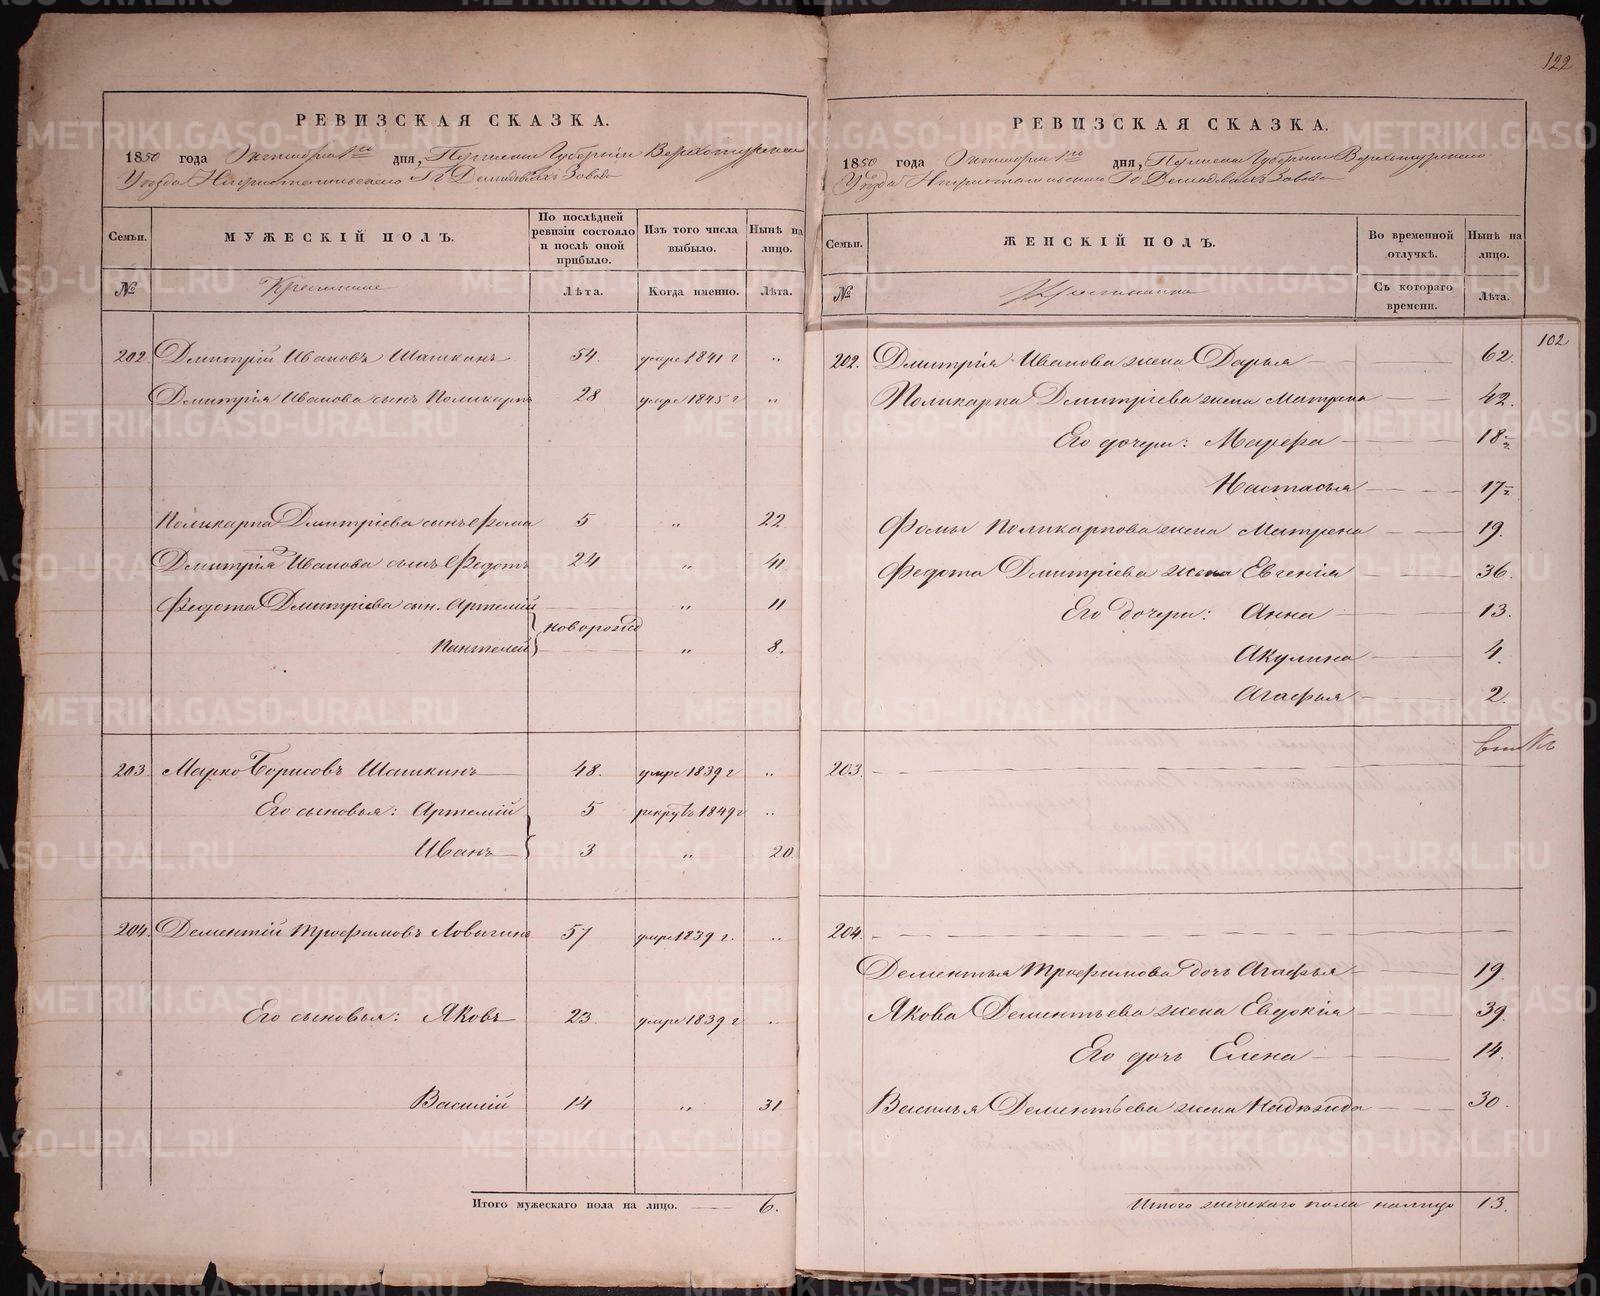 122
РЕВИЗСКАЯ СКАЗКА.
1850 года Октября 1го дня, Пермской Губернiи Верхотурскаго
Уѣзда Нижнетагильскаго Гг Демидовыхъ Завода
Семьи. МУЖЕСКIЙ ПОЛЪ. По послѣдней ревизiи состояло и послѣ оной прибыло. Изъ того числа выбыло. Нынѣ на лицо.
№ Крестьяне Лѣта. Когда именно. Лѣта.
202 Дмитрiй Ивановъ Шапкинъ 54. умре 1841 г "
Дмитрiя Иванова сынъ Поликарпъ 28 умре 1845 г "
Поликарпа Дмитрiева сынъ Фома 5 " 22
Дмитрiя Иванова сынъ Федотъ 24 " 41
Федота Дмитрiева сын. Артемiй новорожд " 11
Пантелей " 8.
203 Марко Борисовъ Шапкинъ 48. умре 1839 г "
Его сыновья: Артемiй 5 рекрутъ 1849 г "
Иванъ 3 " 20
204. Дементiй Трофимовъ Ловыгинъ 57 умре 1839 г. "
Его сыновья: Яковъ 23. умре 1839 г "
Василiй 14 " 31
Итого мужескаго пола на лицо. 6.
РЕВИЗСКАЯ СКАЗКА.
1850 года Октября 1го дня, Пермской Губернiи Верхотурскаго
Уѣзда Нижнетагильскаго Гг Демидовыхъ Завода
Семьи. ЖЕНСКIЙ ПОЛЪ. Во временной отлучкѣ. Нынѣ на лицо.
№ Крестьянки Съ котораго времени. Лѣта.
102
202. Дмитрiя Иванова жена Дарья 62.
Поликарпа Дмитрiева жена Матрена 42.
Его дочери: Марфа 18
Настасья 17
Фомы Поликарпова жена Матрена 19.
Федота Дмитрiева жена Евгенiя 36.
Его дочери: Анна 13.
Акулина 4.
Агафья 2.
203.
204.
Дементья Трофимова дочь Агафья 19.
Якова Дементьева жена Евдокiя 39.
Его дочь Елена 14.
Василья Дементьева жена Надежда 30.
Итого женскаго пола налицо 13.